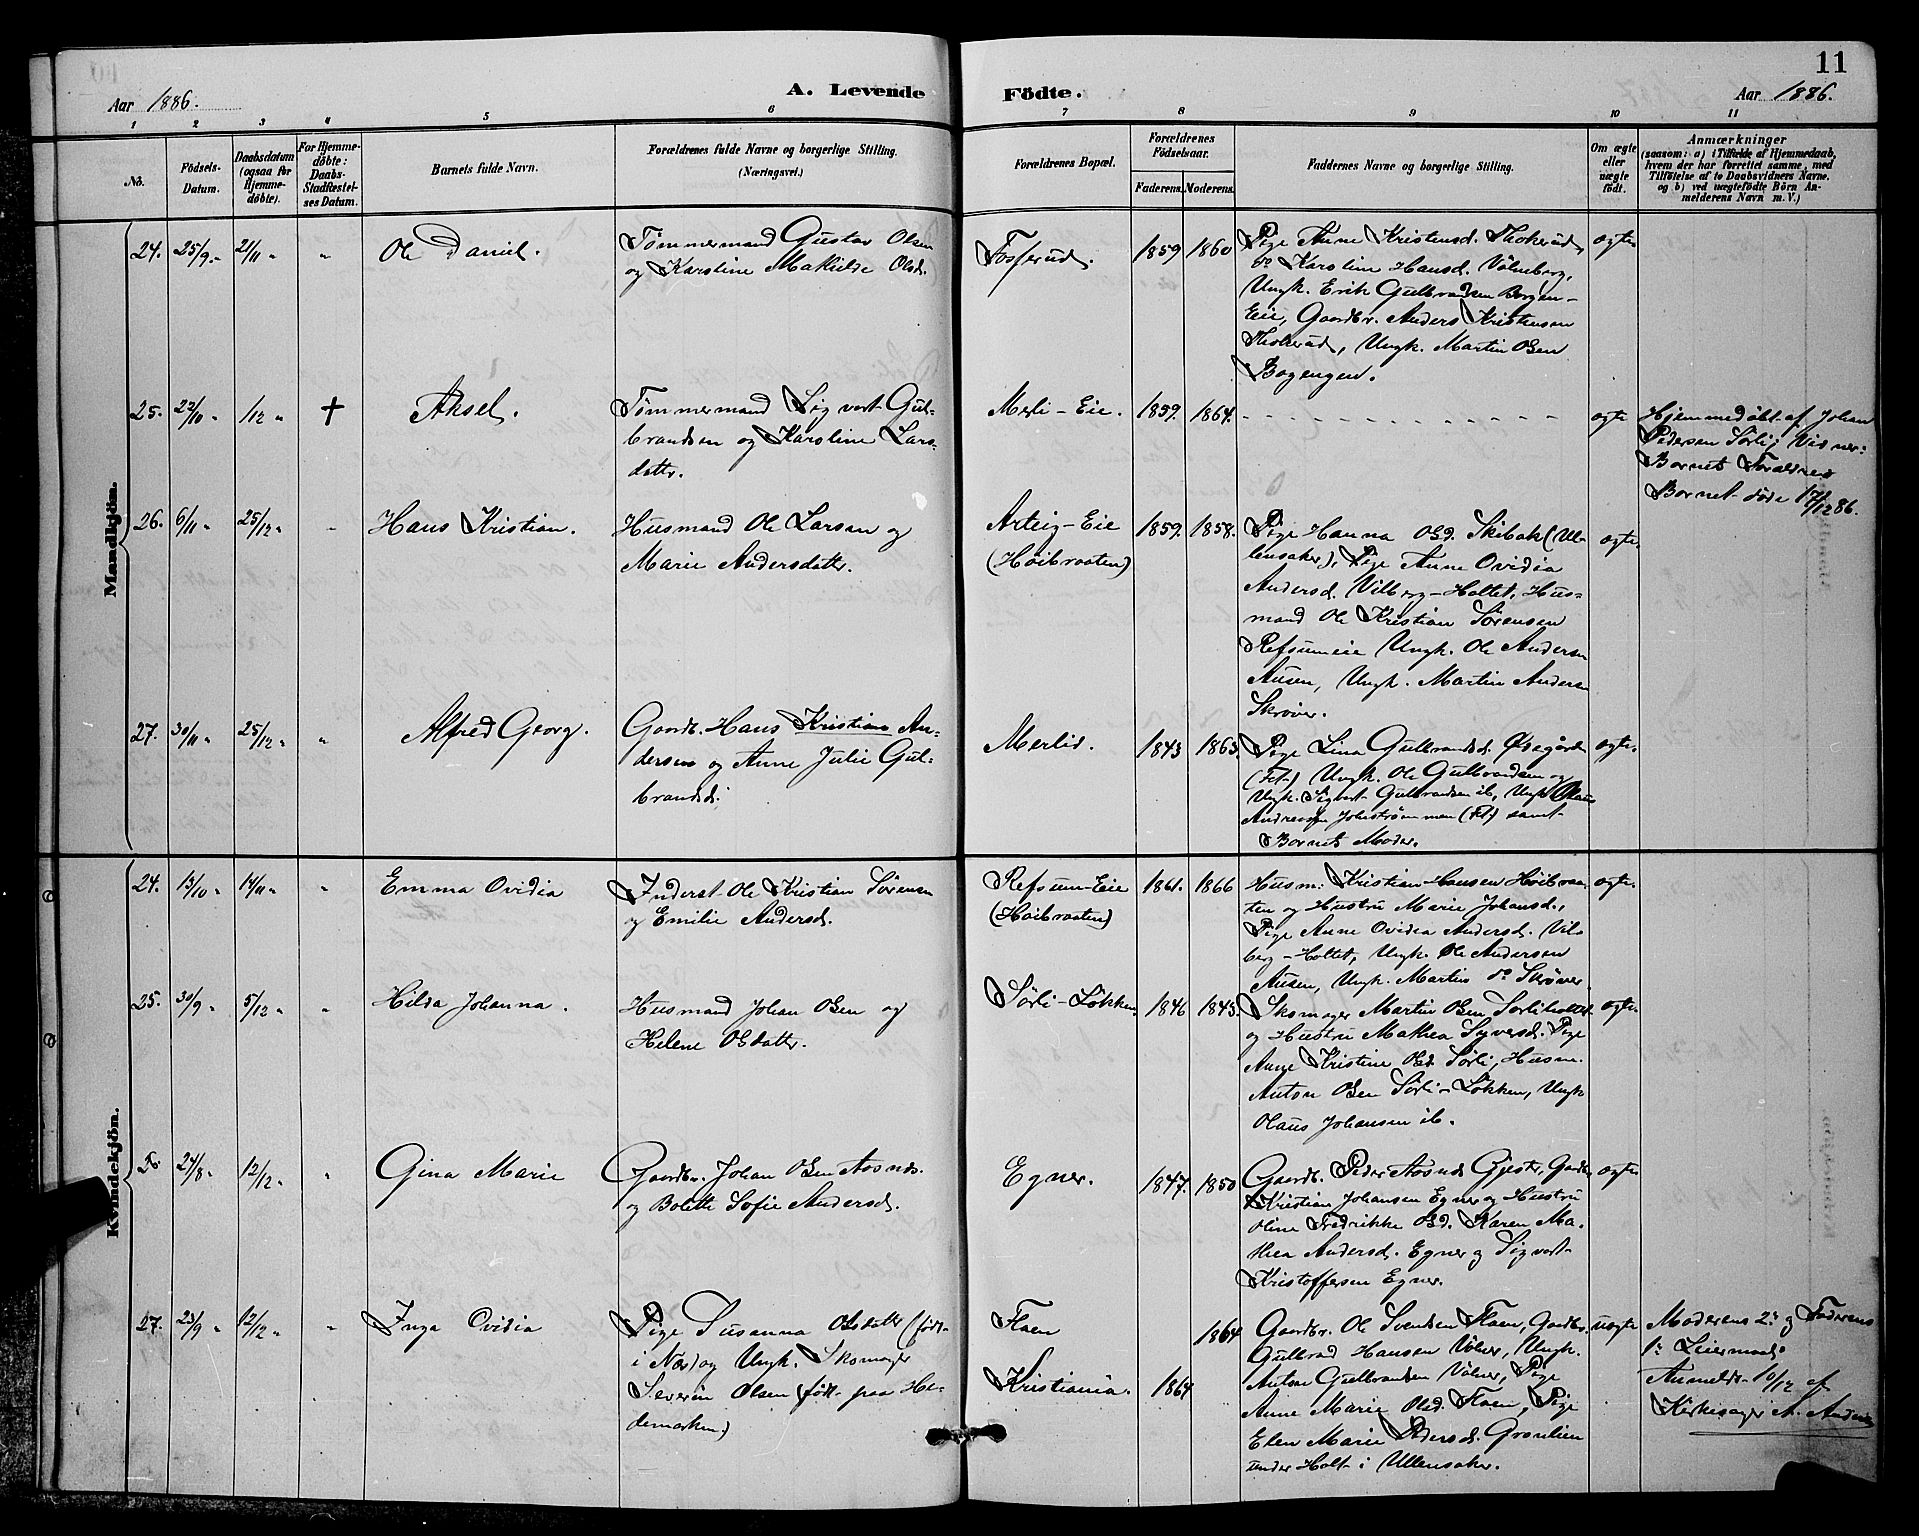 11
Aar 1886.
A. Levende Födte.
Aar 1886.
1 2 3 4 5 6 7 8 9 10 11
No.
Födsels-
Datum.
Daabsdatum
(ogsaa for
Hjemme-
döbte).
For Hjemme-
döbte:
Daabs-
Stadfæstel-
ses Datum.
Barnets fulde Navn.
Forældrenes fulde Navne og borgerlige Stilling.
(Næringsvei.)
Forældrenes Bopæl.
Forældrenes
Födselsaar.
Faderens. Moderens.
Faddernes Navne og borgerlige Stilling.
Om ægte
eller
uægte
födt.
Anmærkninger
(saasom: a) i Tilfælde af Hjemmedaab,
hvem der har forrettet samme, med
Tilföielse af to Daabsvidners Navne,
og b) ved uægtefödte Börn An-
melderens Navn m. V.)
Mandkjön.
24. 25/9 „ 21/11 „ „ Ole Daniel.
Tømmermand Gustav Olsen
og Karoline Makilde Olsd.
Fosserud. 1859 1860
Pige Anne Kristensd. Thokerud,
do Karoline Hansd. Völneberg,
Ungk. Erik Gulbrandsen Borgen-
Eie, Gaardbr. Anders Kristensen
Thokerud, Ungk. Martin Olsen
Bogengen.
ægte
25. 22/10 „ 1/12 „ † Aksel.
Tømmermand Sigvart Gul-
brandsen og Karoline Lars-
datter.
Merli-Eie. 1859. 1864.
ægte
Hjemmedøbt af Johan
Pedersen Sörli; Vidner:
Barnets Forældre
Barnet døde 17/12 86.
26. 6/11 „ 25/12 „ „ Hans Kristian.
Husmand Ole Larsen og
Marie Andersdatter.
Arteig-Eie
(Høibraaten)
1859. 1858.
Pige Hanna Olsd. Skibak (Ul-
lensaker), Pige Anne Ovidia
Andersd. Vilberg-Holtet, Hus-
mand Ole Kristian Sörensen
Refsumeie Ungk. Ole Andersen
Ausen, Ungk. Martin Andersen
Skrøver.
ægte
27. 30/11 „ 25/12 „ „ Alfred Georg.
Gaardb. Hans Kristian An-
dersen og Anne Julie Gul-
brandsd.
Merlid. 1843 1863.
Pige Lina Gulbrandsd. Øsegården
(Fet) Ungk. Ole Gulbrandsen og
Ungk. Sigvart Gulbrandsen ib, Ungk. Olaus
Andreassen Jøhnströmmen (Fet) samt
Barnets Moder.
ægte
Kvindekjön.
24. 13/10 „ 14/11 „ „ Emma Ovidia
Inderst Ole Kristian Sørensen
og Emilie Andersd.
Refsum-Eie
(Høibraaten)
1861. 1866
Husm: Kristian Hansen Høibraa-
ten og Hustru Marie Johansd.,
Pige Anne Ovidia Andersd. Vil-
berg-Holtet, Ungk. Ole Andersen
Ausen, Ungk. Martin do Skrøver.
ægte
25. 30/9 „ 5/12 „ „ Hilda Johanna.
Husmand Johan Olsen og
Helene Olsdatter.
Sørli-Løkken. 1846 1845.
Skomager Martin Olsen Sørliholtet
og Hustru Mathea Syversd. Pige
Anne Kristine Olsd. Sørli, Husm.
Anton Olsen Sørli-Løkken, Ungk.
Olaus Johansen ib.
ægte
26. 24/8 „ 12/12 „ „ Gina Marie
Gaardbr. Johan Olsen Aasnæs.
og Bolette Sofie Andersd.
Egner. 1847. 1850
Gaardb. Peder Aasnæs Gjester, Gaardbr.
Kristian Johansen Egner og Hustru
Oline Fredrikke Olsd. Karen Ma-
thea Andersd. Egner og Sigvart
Kristoffersen Egner.
ægte
27. 23/9 „ 12/12 „ „ Inga Ovidia
Pige Susanna Olsdatter (født
i Næs) og Ungk. Skomager
Severin Olsen (født paa He-
demarken)
Flaen
Kristiania.
1864
1864
Gaardbr. Ole Svendsen Flaen, Gaardbr.
Gulbrad Hansen Völner, Ungk.
Anton Gulbrandsen Völner, Pige
Anne Marie Olsd. Flaen, Pige
Elen Marie Pedersd. Gronlien
under Holt i Ullensaker.
uægte
Moderens 2. og Faderens
1. Leiermaal.
Anmeldt 10/12 af
Kirkesager A. Andersen